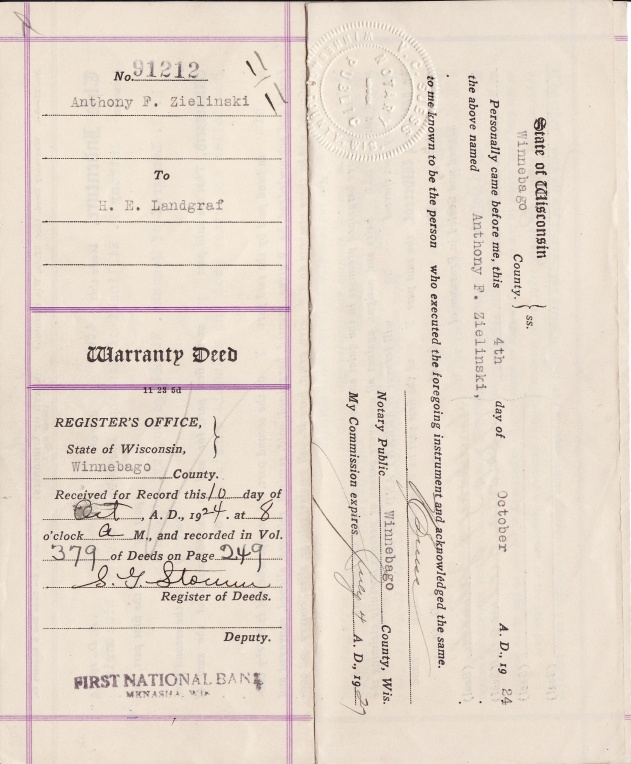 No. 91212
11
11
Anthony F. Zielinski
To
H. E. Landgraf
Warranty Deed
11 23 5d
REGISTER'S OFFICE,
State of Wisconsin,
Winnebago County.
Received for Record this 10 day of
Oct, A. D., 1924. at 8
o'clock a M., and recorded in Vol.
379 of Deeds on Page 249
Register of Deeds.
Deputy.
FIRST NATIONAL BANK
MENASHA, WIS.
State of Wisconsin
Winnebago County. } ss.
Personally came before me, this 4th day of October A. D., 19 24
the above named Anthony F. Zielinski,
to me known to be the person who executed the foregoing instrument and acknowledged the same.
Notary Public Winnebago County, Wis.
My Commission expires July 4 A. D., 1927
NOTARY
PUBLIC